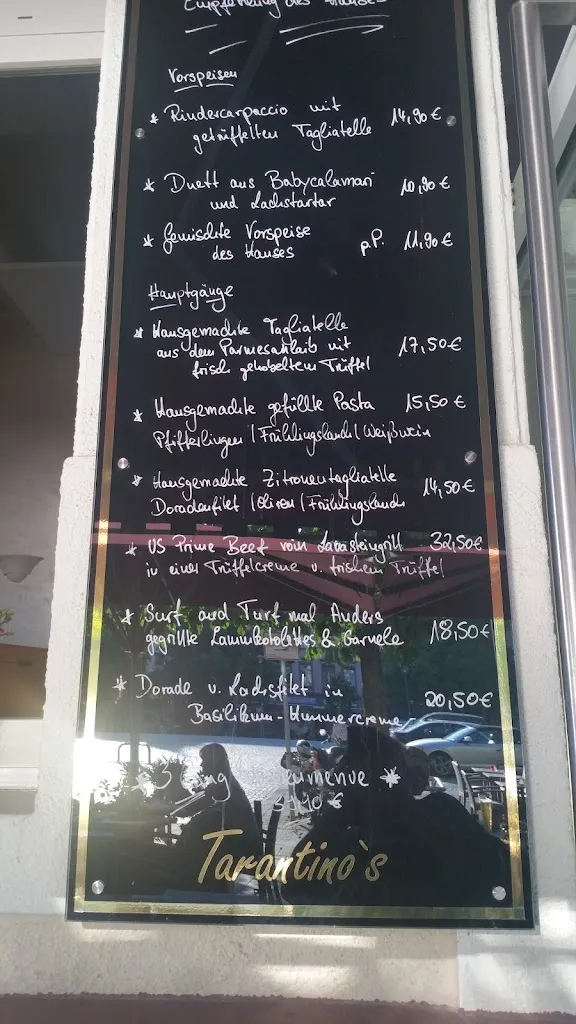 Empfehlung des Hauses
Vorspeisen
* Rindercarpaccio mit
getrüffelten Tagliatelle 14,90 €
* Duett aus Babycalamari
und Lachstartar 10,90 €
* Gemischte Vorspeise
des Hauses p.P. 11,90 €
Hauptgänge
* Hausgemachte Tagliatelle
aus dem Parmesanlaib mit 17,50 €
frisch gehobeltem Trüffel
* Hausgemachte gefüllte Pasta 15,50 €
Pfifferlingen / Frühlingslauch /
* Hausgemachte Zitronentagliatelle
Doradenfilet / Oliven / Frühlingslauch 14,50 €
* US Prime Beef vom Lavasteingrill 32,50 €
in einer Trüffelcreme u. frischem Trüffel
* Surf and Turf mal Anders
gegrillte Lammkoteletts & Garnele 18,50 €
* Dorade u. Lachsfilet in 20,50 €
Basilikum-Hummercreme
* 3 *
€
Tarantino`s